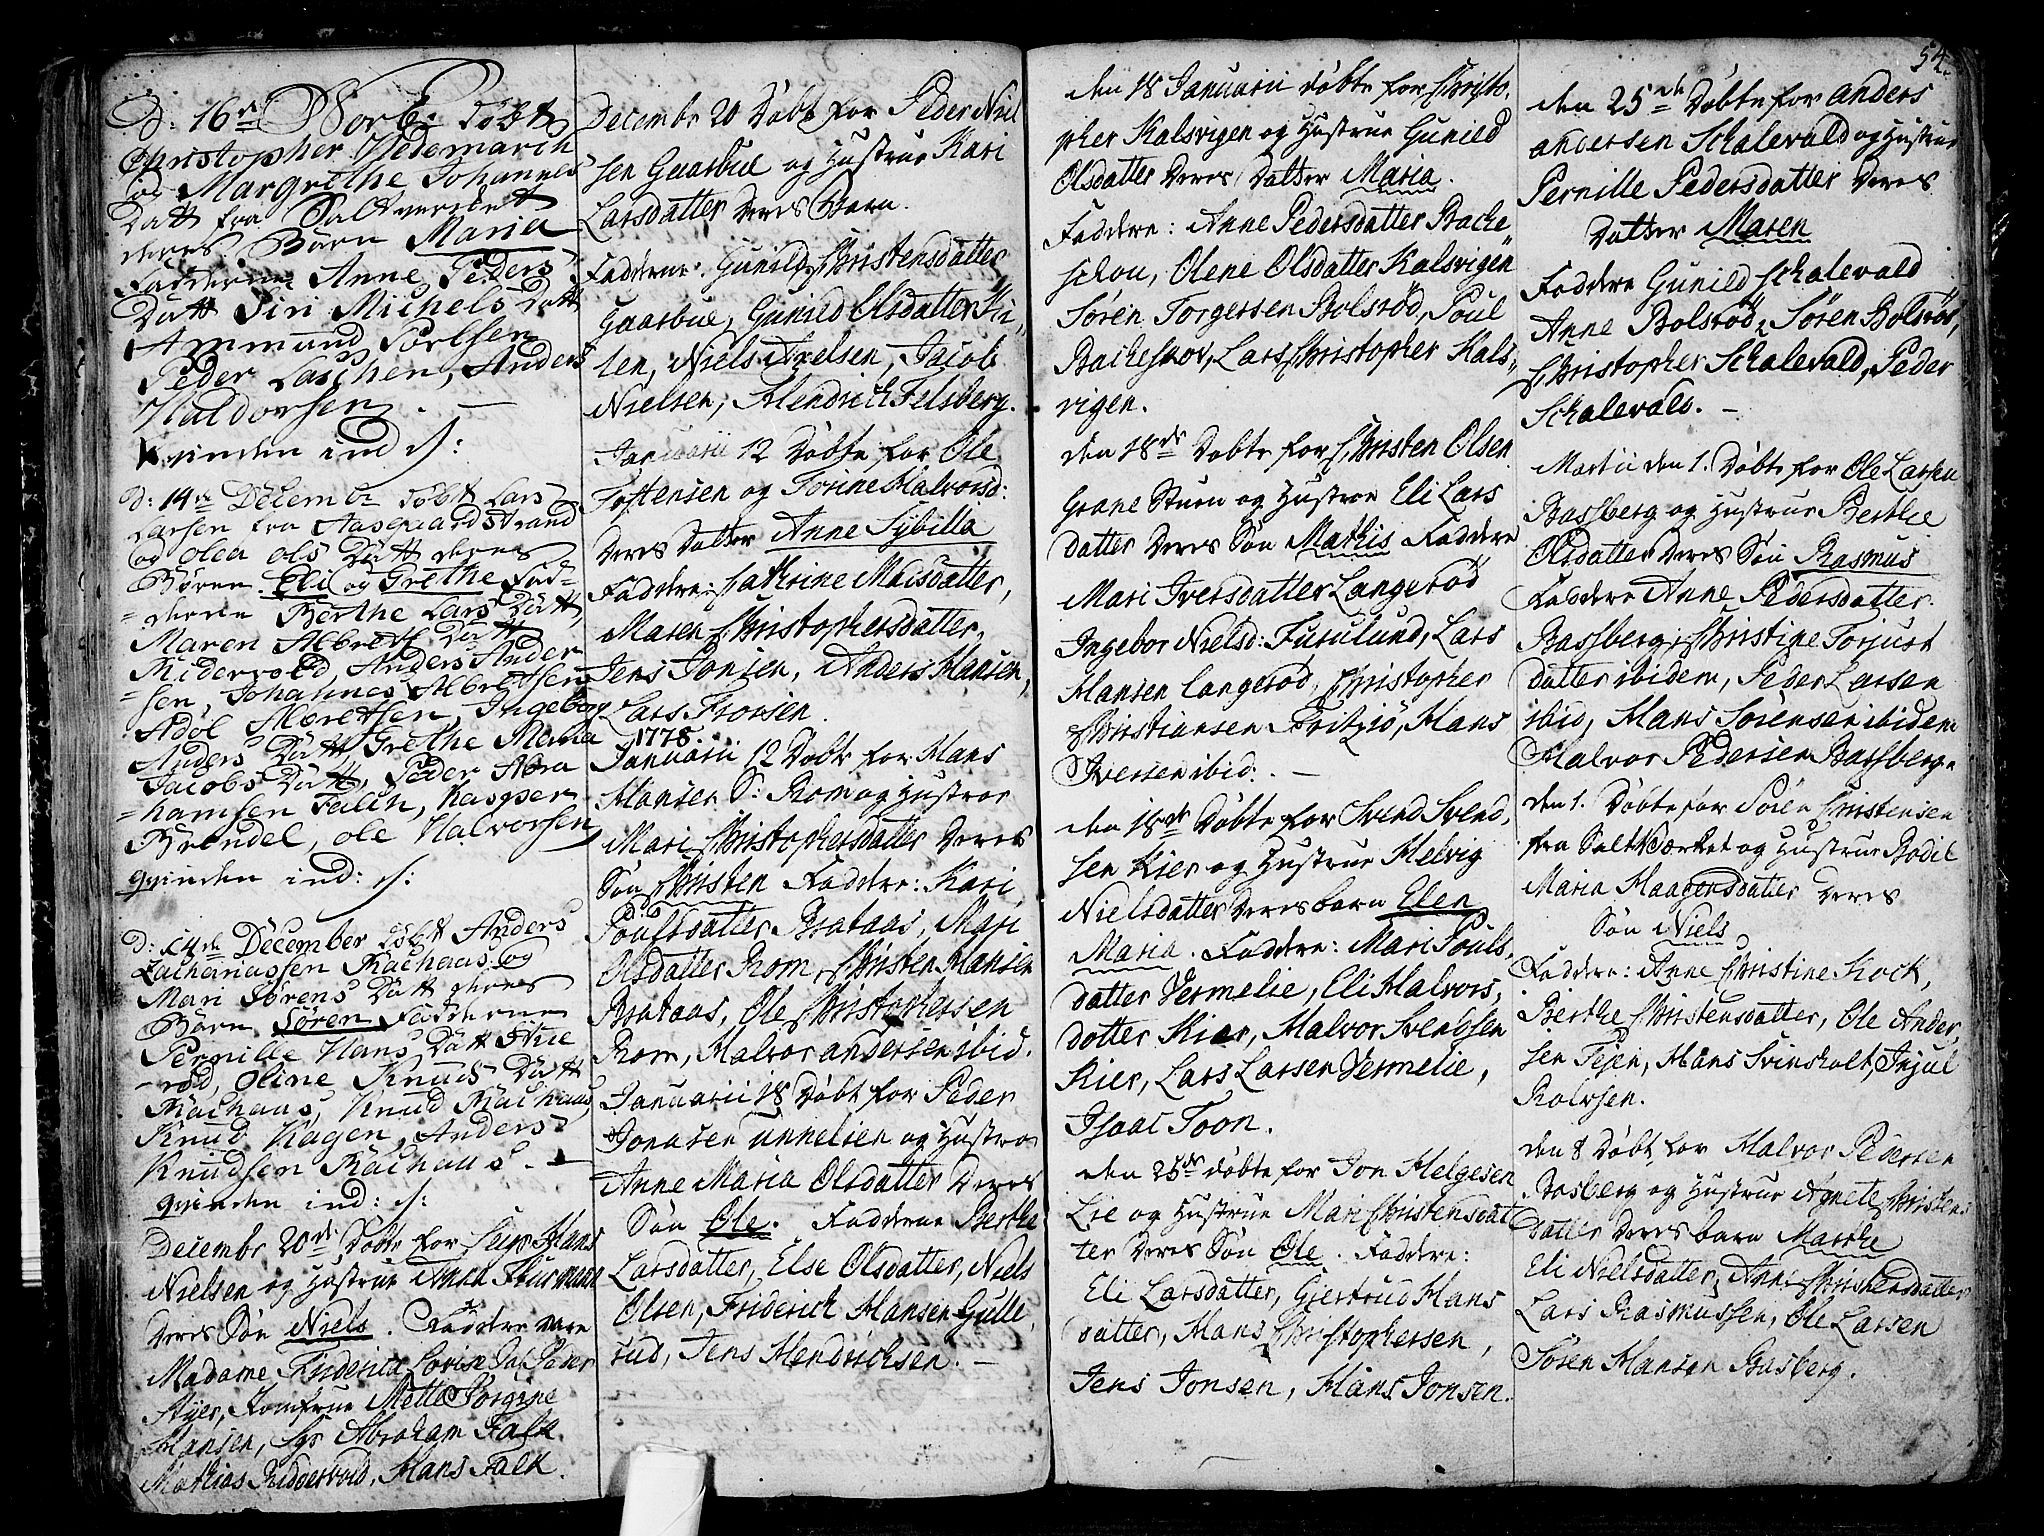 D: 16de Novb: döbt
Christopher Hedemarch
og Margrethe Johannes
Datt fra Saltverchet
deres Börn Maria
Fadderne Anne Peders
Datt Siri Michels Datt
Ammund Poelsen
Peder Laschen, Anders
Haldorsen. —
Kvinden ind s:
d: 14de Decembr döbt Lars
Larsen fra Aasgaardstrand
og Olea Ols Datt deres
Börn Eli og Grethe Fad=
=derne Berthe Lars Datt,
Maren Albreth Datt
Riddervold, Anders Ander
=sen, Johannes Albrethsen
Adol Albrethsen, Ingeborg
Anders Datt, Grethe Maria
Jacobs Datt, Peder Abra
=hamsen Falen, Kasper
Brendel, Ole Halvorsen
qvinden ind: s:
d: 14de December döbt Anders
Zachariassen Rachaas og
Mari Sörens Datt deres
Börn Sören Fadderne
Pernille Hans Datt Stue
=röd, Oline Knuds Datt
Rachaas, Knud Rachaas
Knud Hagen, Anders
Knudsen Rachaas. —
qvinden ind: s:
Decembr 20de Döbt for Seign Hans
Nielsen og Hustrue Anna Thurmann
Deres Sön Niels. Faddere vare
Madame Friderica Lovise Peder
Ayer, Jomfrue Mette Jörgine
Hansen, Sgr Abraham Falk.
Mathias Riddervold, Hans Falk.
Decembr 20 Döbt for Peder Niel
sen Gaarbue og Hustrue Kari
Larsdatter Deres Barn.
Fadderne: Gunild Christensdatter
Gaarbue, Gunild Olsdatter
Niels Axelsen, Jacob
Nielsen, Hendrich Felsberg.
Januarii 12 Döbte for Ole
Toftensen og Torine Halvorsd:
Deres Datter Anne Sybilla
Faddere: Cathrine Maisdatter,
Maren Christophersdatter,
Jens Jonsen, Anders Hansen,
Lars Frorsen.
1778.
Januarii 12 Döbte for Hans
Hansen S: Rom og Hustroe
Mari Christophersdatter Deres
Sön Christen Faddere: Kari
Poulsdatter Brataas, Mari
Olsdatter Rom, Christen Hansen
Brataas, Ole Christophersen
Rom, Halvor andersen ibid.
Januarii 18 Döbt for Peder
Jonasen unnelsen og Hustroe
Anne Maria Olsdatter Deres
Sön Ole. Fadderne Berthe
Larsdatter, Else Olsdatter, Niels
Olsen, Friderich Hansen Gulle
rud, Jens Hendrichsen. —
den 18 Januarii döbte for Christo,
pher Kalsvigen og Hustrue Gunild
Olsdatter Deres Datter Maria.
Faddere: Anne Pedersdatter Bache
schou, Olene Olsdatter Kalsvigen
Sören Torgersen Bolsröd, Poul
Bacheskov, Lars Christopher Kals,
vigen.
den 18de Döbte for Christen Olsen
Grane Stuen og Hustroe Eli Lars
datter Deres Sön Mathis Faddere
Mari Iversdatter Langeröd
Ingebor Nielsd: Furulund, Lars
Hansen Langeröd, Christopher
Christiansen Fritzö, Hans
Iversen ibid: —
den 18de Döbte for Svend Svend,
sen Kier og Hustrue Helvig
Nielsdatter Deres barn Elen
Maria. Faddere: Mari Pouls,
datter Vermelie, Eli Halvors,
datter Kier, Halvor Svendsen
Kier, Lars Larsen Vermelie,
Isaac Toon.
den 25de döbte for Jon Helgesen
Lie og Hustrue Mari Christensdat
ter Deres Sön Ole. Faddere:
Eli Larsdatter, Giertrud Hans
datter, Hans Christophersen,
Jens Jonsen, Hans Jonsen.
54.
den 25de Döbte for anders
andersen Schalevald og Hustrue
Pernille Pedersdatter Deres
Datter Maren
Faddere Gunild Schalevald
Anne Bolsröd, Sören Bolsröd,
Christopher Schalevald, Peder
Schalevald. —
Martii den 1. Döbte for Ole Larsen
Bassberg og Hustrue Berthe
Olsdatter Deres Sön Rasmus
Faddere Anne Pedersdatter
Bassberg, Christine Torjust
datter ibidem, Peder Larsen
ibid, Hans Sörensen ibidem
Halvor Pedersen Bassberg.
den 1. Döbte for Sören Christensen
fra SaltVærket og Hustrue Bodil
Maria Haagensdatter Deres
Sön Niels
Faddere: Anne Christine Kock,
Berthe Christensdatter, Ole Ander,
sen Teien, Hans Svinsholt, Injul
Rolvsen.
den 8 Döbt for Halvor Pedersen
Basberg og Hustrue Agnete Christens
Datter Deres barn Marthe
Eli Nielsdatter, Anne Christensdatter
Lars Rasmussen, Ole Larsen
Sören Hansen Basberg.